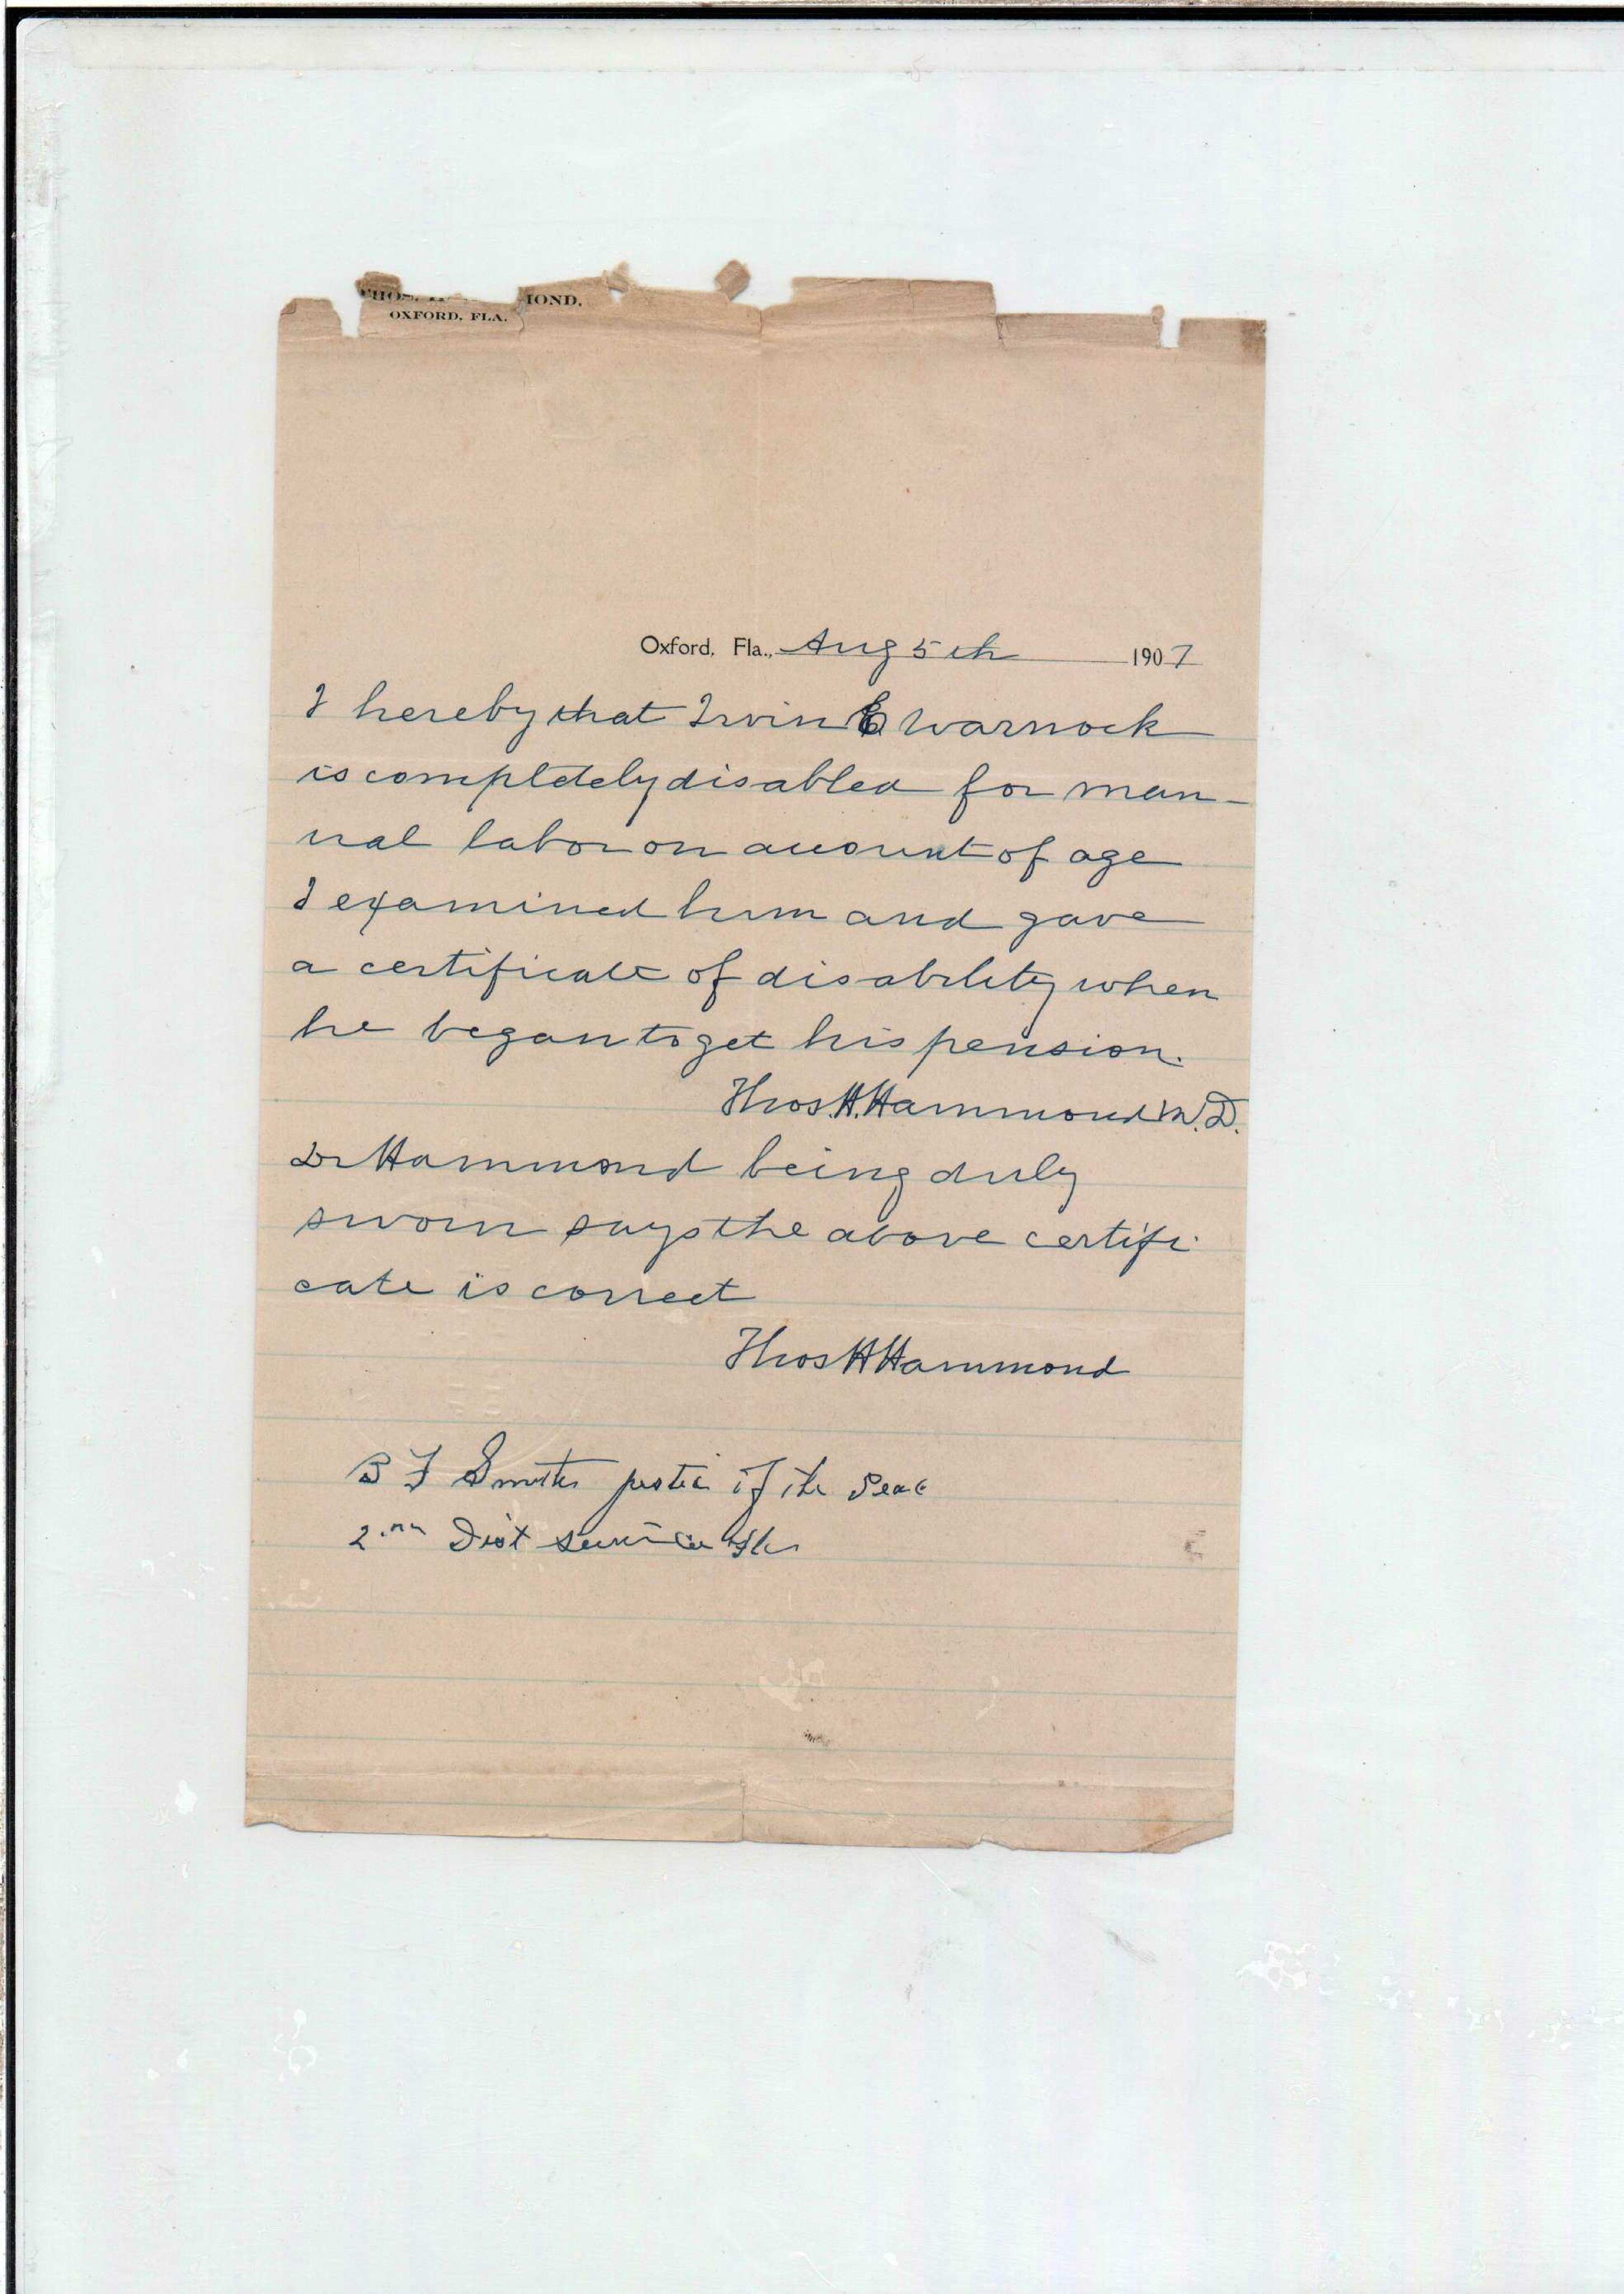 THOS. H. MOND.
OXFORD, FLA.
Oxford, Fla., Aug 5th 1907
I hereby that Irvin E Warnock
is completely disabled for man-
ual labor on account of age
I examined him and gave
a certificate of disability when
he began to get his pension.
Thos. H. Hammond M.D.
Dr Hammond being duly
sworn says the above certifi-
cate is correct
Thos H Hammond
B F Smith justic of the Peac
2nd Dist Fla